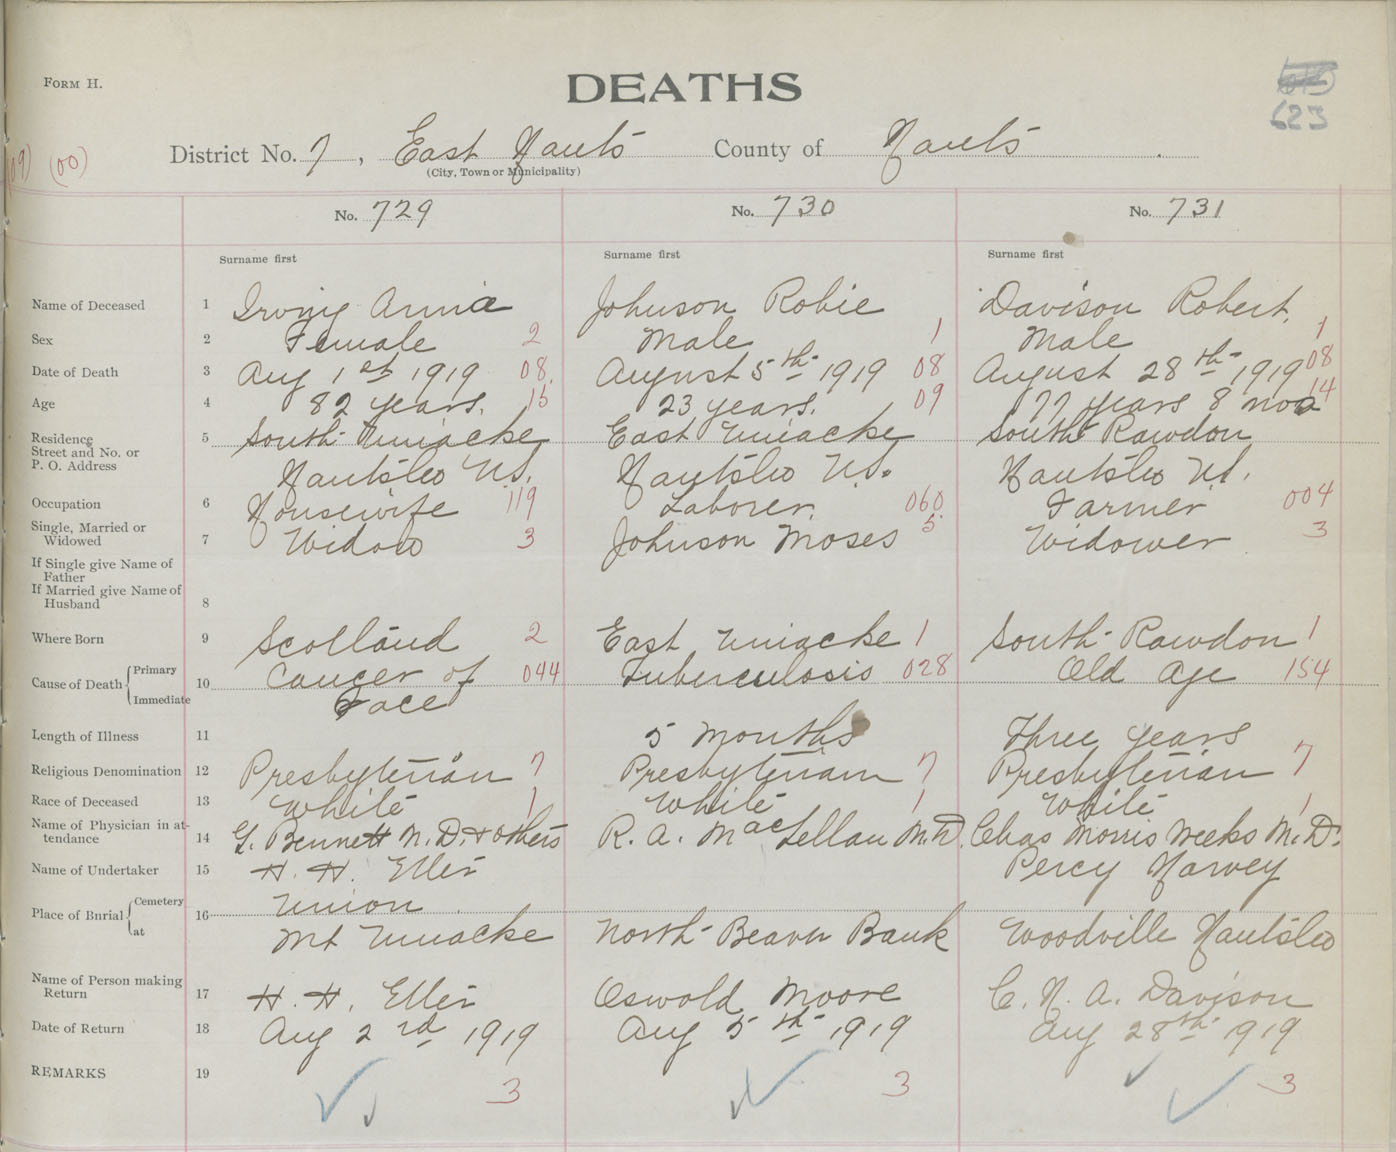 FORM H.
DEATHS
623
(09) (00)
District No. 7, East Hants County of Hants
(City, Town or Municipality)
No. 729 No. 730 No. 731
Surname first Surname first Surname first
Name of Deceased 1 Irving Annie Johnson Robie Davison Robert.
Sex 2 Female 2 Male 1 Male 1
Date of Death 3 Aug 1st 1919 08 August 5th 1919 08 August 28th 1919 08
Age 4 82 years. 15 23 years. 09 77 years 8 mos 14
Residence
Street and No. or
P. O. Address
5 South Uniacke East Uniacke South Rawdon
Hants Co N.S. Hants Co N.S. Hants Co N.S.
Occupation 6 Housewife 119 Laborer. 060 Farmer 004
Single, Married or
Widowed
7 Widow 3 Johnson Moses 5 Widower 3
If Single give Name of
Father
If Married give Name of
Husband
8
Where Born 9 Scotland 2 East Uniacke 1 South Rawdon 1
Cause of Death Primary
Immediate
10 Cancer of 044 Tuberculosis 028 Old Age 154
Face
Length of Illness 11 5 Months Three years
Religious Denomination 12 Presbyterian 7 Presbyterian 7 Presbyterian 7
Race of Deceased 13 White 1 White 1 White 1
Name of Physician in at-
tendance
14 G. Bennett M.D. & others R. A. MacLellan M.D. Chas Morris Weeks M.D.
Name of Undertaker 15 H. H. Percy Harvey
Place of Burial Cemetery
at
16 Union
Mt Uniacke North Beaver Bank Woodville Hants Co
Name of Person making
Return
17 H. H. Oswold Moore C. H. A. Davison
Date of Return 18 Aug 2nd 1919 Aug 5th 1919 Aug 28th 1919
REMARKS 19
3 3 3